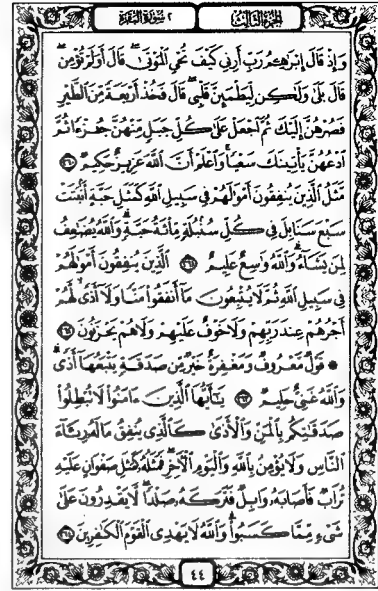 الجزء الثالث
٢ سورة البقرة
وَإِذْ قَالَ إِبْرَٰهِـۧمُ رَبِّ أَرِنِى كَيْفَ تُحْىِ ٱلْمَوْتَىٰ ۖ قَالَ أَوَلَمْ تُؤْمِن ۖ
قَالَ بَلَىٰ وَلَـٰكِن لِّيَطْمَئِنَّ قَلْبِى ۖ قَالَ فَخُذْ أَرْبَعَةً مِّنَ ٱلطَّيْرِ
فَصُرْهُنَّ إِلَيْكَ ثُمَّ ٱجْعَلْ عَلَىٰ كُلِّ جَبَلٍ مِّنْهُنَّ جُزْءًا ثُمَّ
ٱدْعُهُنَّ يَأْتِينَكَ سَعْيًا ۚ وَٱعْلَمْ أَنَّ ٱللَّهَ عَزِيزٌ حَكِيمٌ ٢٦٠
مَّثَلُ ٱلَّذِينَ يُنفِقُونَ أَمْوَٰلَهُمْ فِى سَبِيلِ ٱللَّهِ كَمَثَلِ حَبَّةٍ أَنۢبَتَتْ
سَبْعَ سَنَابِلَ فِى كُلِّ سُنۢبُلَةٍ مِّا۟ئَةُ حَبَّةٍ ۗ وَٱللَّهُ يُضَـٰعِفُ
لِمَن يَشَآءُ ۗ وَٱللَّهُ وَٰسِعٌ عَلِيمٌ ٢٦١ ٱلَّذِينَ يُنفِقُونَ أَمْوَٰلَهُمْ
فِى سَبِيلِ ٱللَّهِ ثُمَّ لَا يُتْبِعُونَ مَآ أَنفَقُوا۟ مَنًّا وَلَآ أَذًى ۙ لَّهُمْ
أَجْرُهُمْ عِندَ رَبِّهِمْ وَلَا خَوْفٌ عَلَيْهِمْ وَلَا هُمْ يَحْزَنُونَ ٢٦٢
۞ قَوْلٌ مَّعْرُوفٌ وَمَغْفِرَةٌ خَيْرٌ مِّن صَدَقَةٍ يَتْبَعُهَآ أَذًى ۗ
وَٱللَّهُ غَنِىٌّ حَلِيمٌ ٢٦٣ يَـٰٓأَيُّهَا ٱلَّذِينَ ءَامَنُوا۟ لَا تُبْطِلُوا۟
صَدَقَـٰتِكُم بِٱلْمَنِّ وَٱلْأَذَىٰ كَٱلَّذِى يُنفِقُ مَالَهُۥ رِئَآءَ
ٱلنَّاسِ وَلَا يُؤْمِنُ بِٱللَّهِ وَٱلْيَوْمِ ٱلْـَٔاخِرِ ۖ فَمَثَلُهُۥ كَمَثَلِ صَفْوَانٍ عَلَيْهِ
تُرَابٌ فَأَصَابَهُۥ وَابِلٌ فَتَرَكَهُۥ صَلْدًا ۖ لَّا يَقْدِرُونَ عَلَىٰ
شَىْءٍ مِّمَّا كَسَبُوا۟ ۗ وَٱللَّهُ لَا يَهْدِى ٱلْقَوْمَ ٱلْكَـٰفِرِينَ ٢٦٤
٤٤